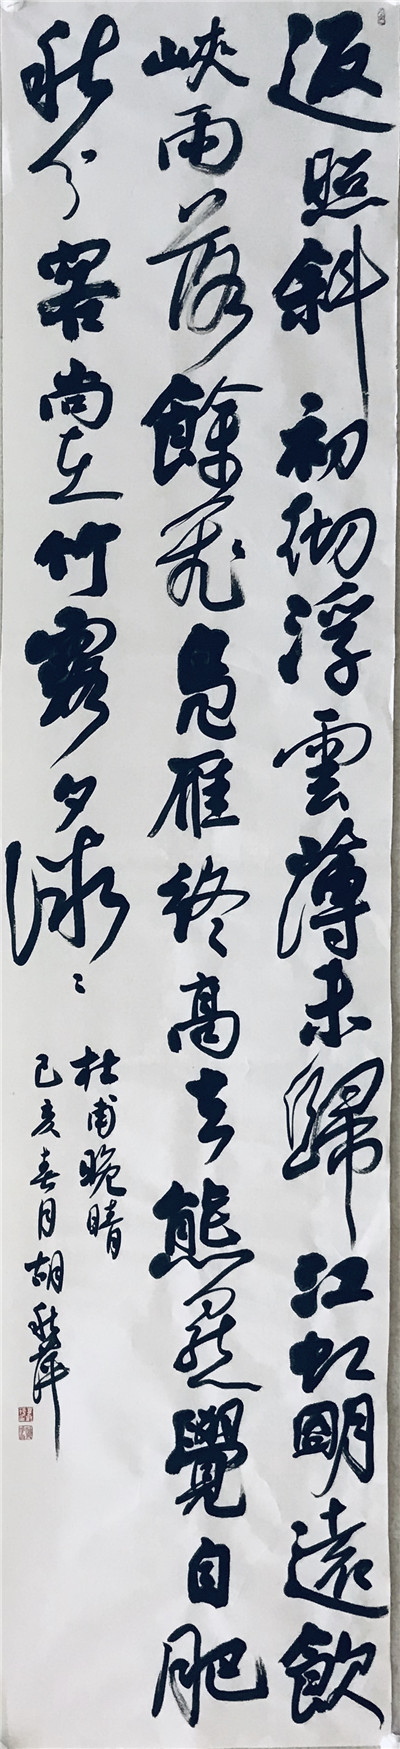 返照斜初彻浮雲薄未歸江虹朙遠飲
峽雨落餘飛鳧雁終高去熊羆覺自肥
秋分客尚在竹露夕微々
杜甫晚晴
己亥春月胡秋萍